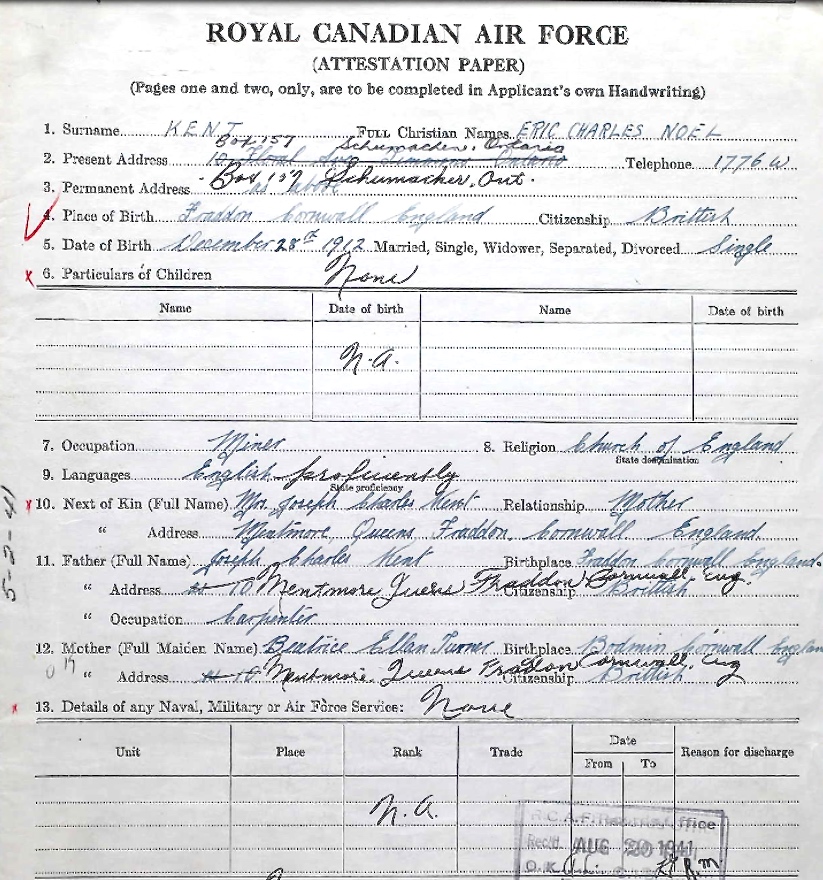 ROYAL CANADIAN AIR FORCE
(ATTESTATION PAPER)
(Pages one and two, only, are to be completed in Applicant's own Handwriting)
1. Surname KENT FULL Christian Names ERIC CHARLES NOEL
Box 157 Schumacher, Ontario
2. Present Address 10 Floral Ave Timmins Ontario Telephone 1776 W
3. Permanent Address as above Box 157 Schumacher, Ont.
4. Place of Birth Fraddon Cornwall England Citizenship British
5. Date of Birth December 28th 1912 Married, Single, Widower, Separated, Divorced Single
x 6. Particulars of Children None
Name Date of birth Name Date of birth
N.A.
7. Occupation Miner 8. Religion Church of England
State denomination
9. Languages English proficiently
State proficiency
x 10. Next of Kin (Full Name) Mrs Joseph Charles Kent Relationship Mother
" Address Mentmore, Queens, Fraddon, Cornwall England.
11. Father (Full Name) Joseph Charles Kent Birthplace Fraddon Cornwall England.
" Address # 10 Mentmore Queens Fraddon Cornwall, Eng. Citizenship British
" Occupation Carpenter
12. Mother (Full Maiden Name) Beatrice Ellan Turner Birthplace Bodmin Cornwall England
" Address # 10 Mentmore. Queens Fraddon Cornwall, Eng Citizenship British
x 13. Details of any Naval, Military or Air Force Service: None
Unit Place Rank Trade Date Reason for discharge
From To
N.A.
R.C.A.F. Office
Rec'd. AUG 20 1941
O.K.
5-2-41